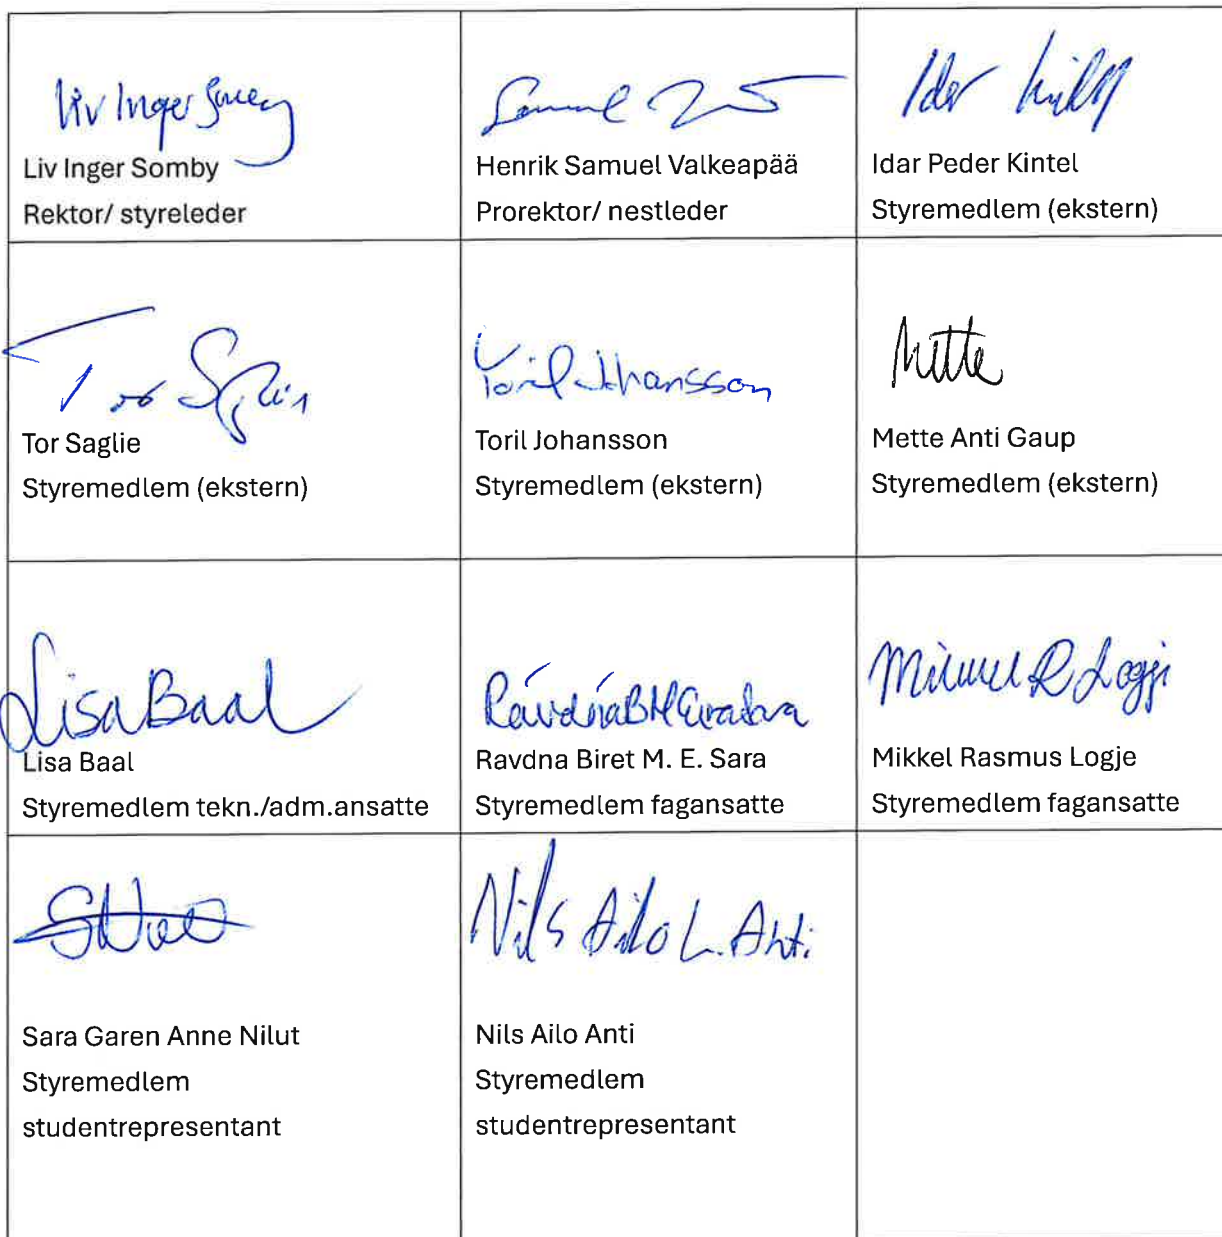 Liv Inger Somby
Liv Inger Somby
Rektor/ styreleder
Samuel
Henrik Samuel Valkeapää
Prorektor/ nestleder
Idar Kintel
Idar Peder Kintel
Styremedlem (ekstern)
Tor Saglie
Tor Saglie
Styremedlem (ekstern)
Toril Johansson
Toril Johansson
Styremedlem (ekstern)
Mette
Mette Anti Gaup
Styremedlem (ekstern)
Lisa Baal
Lisa Baal
Styremedlem tekn./adm.ansatte
Ravdna Biret M. E. Sara
Styremedlem fagansatte
Mikkel R Logje
Mikkel Rasmus Logje
Styremedlem fagansatte
Sara Garen Anne Nilut
Styremedlem
studentrepresentant
Nils Ailo L. Anti
Nils Ailo Anti
Styremedlem
studentrepresentant